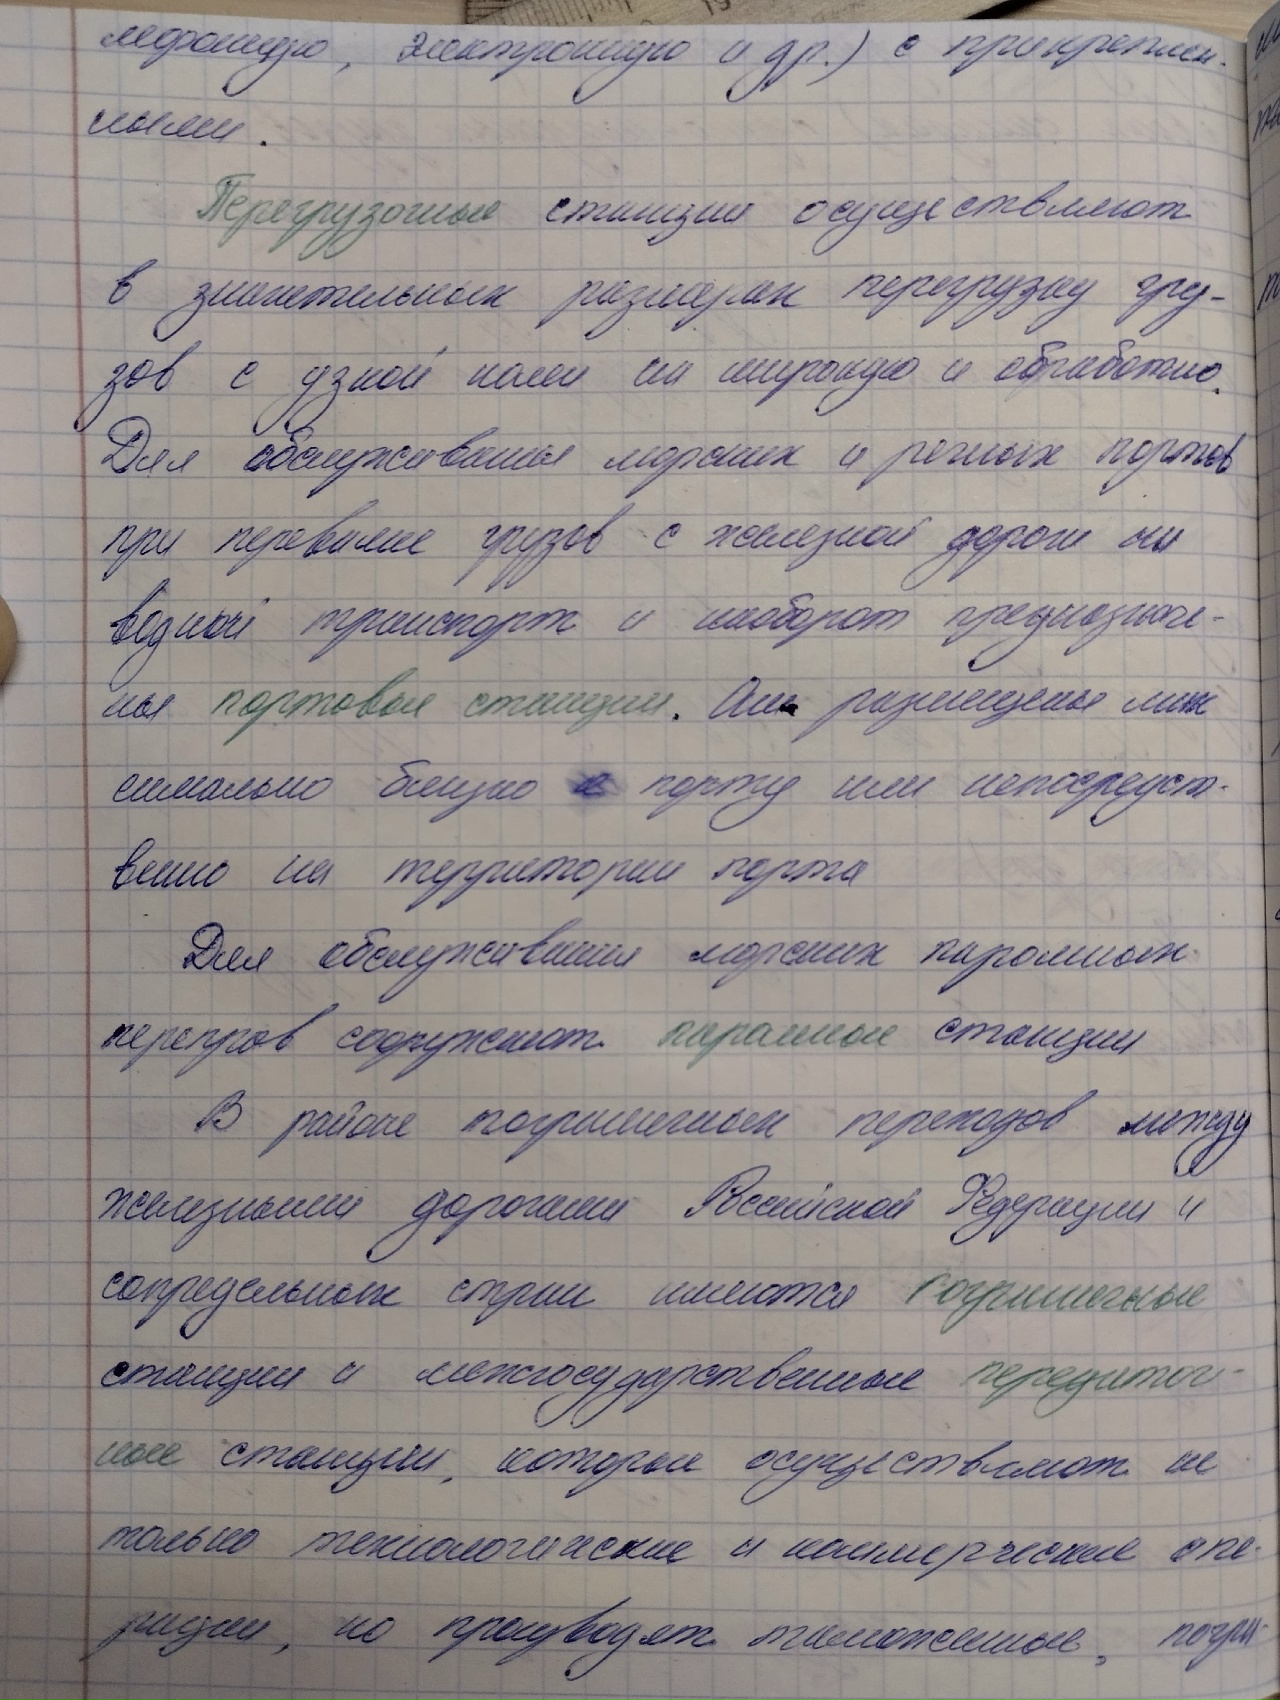 лефонную, электронную и др.) с прикреплен-
ными.
Перегрузочные станции осуществляют
в значительных размерах перегрузку гру-
зов с узкой колеи на широкую и обратно.
Для обслуживания морских и речных портов
при перевалке грузов с железной дороги на
водный транспорт и наоборот предназначе-
ны портовые станции. Они размещены мак
симально близко к порту или непосредст-
венно на территории порта
Для обслуживания морских паромных
переправ сооружают паромные станции
В районе пограничных переходов между
железными дорогами Российской Федерации и
сопредельных стран имеются пограничные
станции и межгосударственные передаточ-
ные станции, которые осуществляют не
только технологические и коммерческие опе-
рации, но производят таможенные, погра-